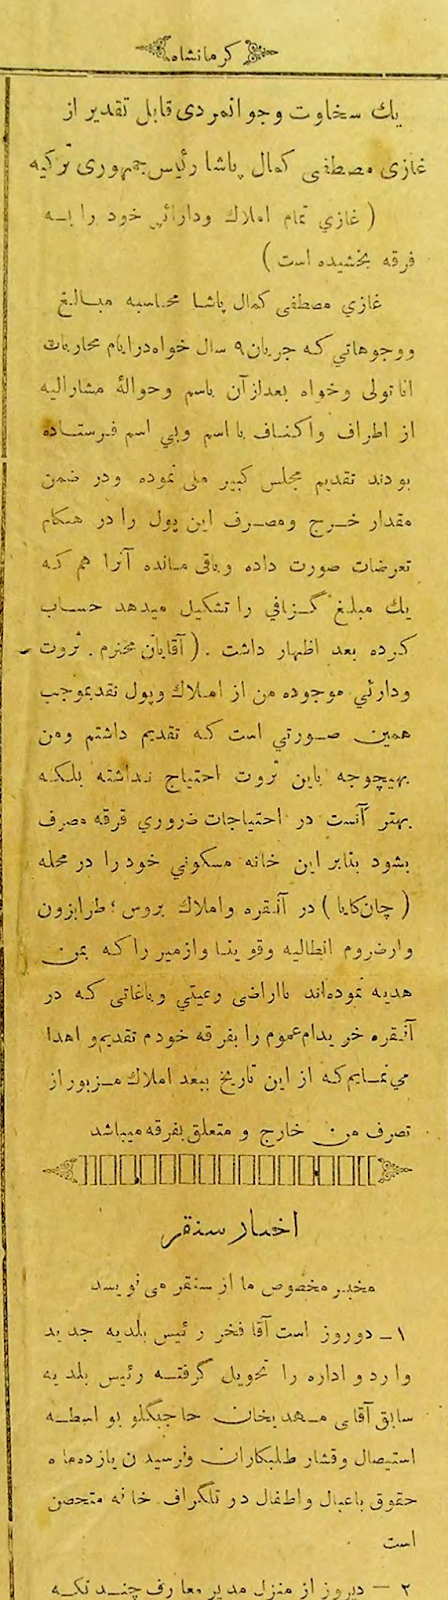 کرمانشاه
يك سخاوت وجوانمردی قابل تقدیر از
غازی مصطفی کمال پاشا رئیس جمهوری ترکیه
( غازي تمام املاك ودارائي خود را بـه
فرقه بخشیده است )
غازي مصطفی کمال پاشا محاسبه مبـالـغ
ووجوهاتي که جریان ۹ سال خواه درایام محاربات
اناتولی وخواه بعدازآن باسم وحوالهٔ مشارالیه
از اطراف واکنـاف بااسم وبي اسم فرستـاده
بودند تقدیم مجلس کبیر ملی نموده ودر ضمن
مقدار خـرج ومصـرف این پول را در هنکام
تعرضات صورت داده وباقی مـانده آنرا هم که
يك مبلـغ گـزافي را تشکیل میدهد حسـاب
کرده بعد اظهار داشت . ( آقایان محترم . ثروت
ودارئي موجوده من از امـلاك وپول نقدبموجب
همین صـورتي است که تقدیم داشتم ومن
بهیچوجه باین ثروت احتیاج نـداشته بلکـه
بهتر آنست در احتیاجات ضروري فرقه مصرف
بشود بنابر این خانه مسکوني خود را در محله
( چان‌کایا ) در آنـقره واملاك بروس ؛ طرابزون
وارضروم انطالیه وقو ینـا وازمیر را کـه بمن
هدیه نموده‌اند بااراضی رعیتي وباغاتی کـه در
آنـقره خر یدام عموم را بفر قه خودم تقدیم و اهدا
مي‌نمـایم که از این تاریخ ببعد املاك مـزبور از
تصرف من خارج و متعلق بفرقه میباشد
اخبـار سنقر
مخبـر مخصوص ما از سنقر می نو یسد
۱ـ دوروز است آقا فخر ر ئیس بلدیه جد ید
وا رد و اداره را تحویل گرفتـه رئیس بلد یه
سابق آقای مـهدیخان حاجیگلو بو اسطـه
استیصال وفشار طلبکاران ونرسید ن یازده ماه
حقوق باعیال واطفال در تلگراف خا نه متحصن
است
۲ — دیروز از منزل مدیر معا رف چنـد تکـه